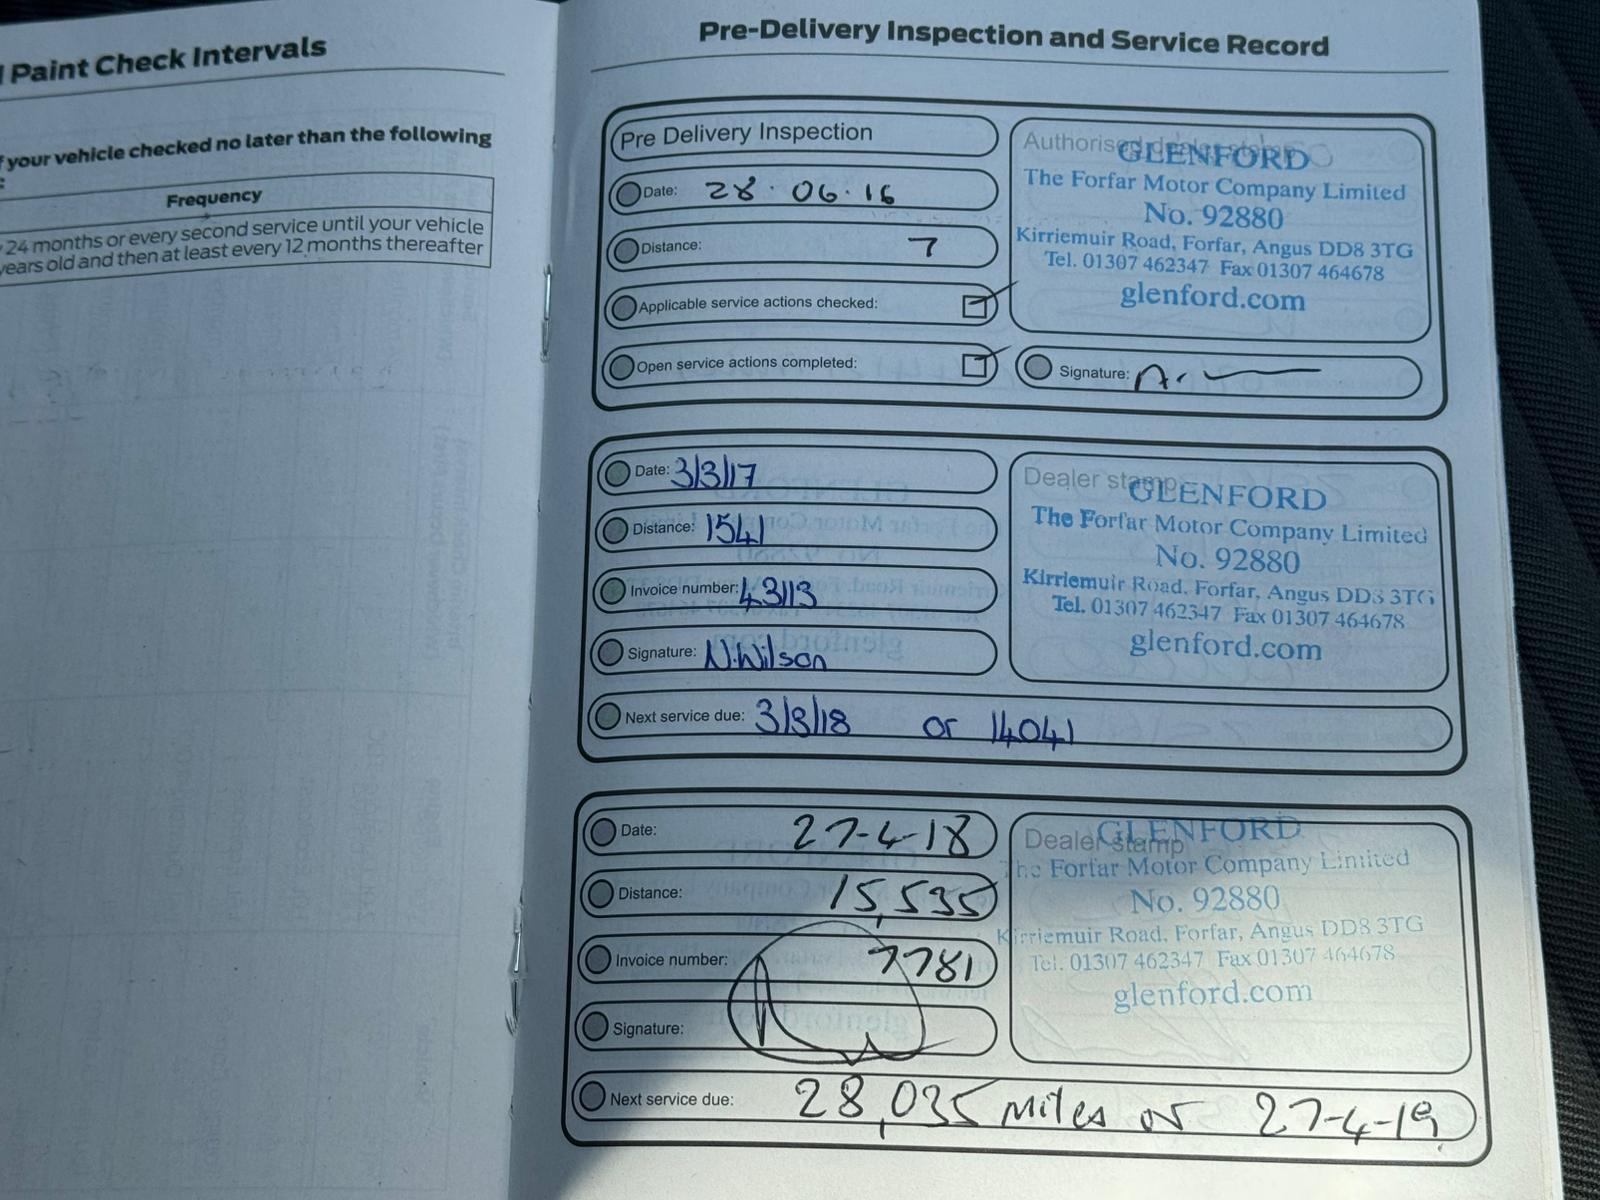 Paint Check Intervals
your vehicle checked no later than the following
Frequency
24 months or every second service until your vehicle
years old and then at least every 12 months thereafter
Pre-Delivery Inspection and Service Record
Pre Delivery Inspection
Date: 28.06.16
Distance: 7
Applicable service actions checked:
Open service actions completed:
Authorised dealer stamp
GLENFORD
The Forfar Motor Company Limited
No. 92880
Kirriemuir Road, Forfar, Angus DD8 3TG
Tel. 01307 462347 Fax 01307 464678
glenford.com
Signature:
Date: 3/3/17
Distance: 1541
Invoice number: 43113
Signature: N.Wilson
Dealer stamp
GLENFORD
The Forfar Motor Company Limited
No. 92880
Kirriemuir Road, Forfar, Angus DD8 3TG
Tel. 01307 462347 Fax 01307 464678
glenford.com
Next service due: 3/3/18 or 14041
Date: 27-4-18
Distance: 15,535
Invoice number: 7781
Signature:
Dealer stamp
GLENFORD
The Forfar Motor Company Limited
No. 92880
Kirriemuir Road, Forfar, Angus DD8 3TG
Tel. 01307 462347 Fax 01307 464678
glenford.com
Next service due: 28,035 miles or 27-4-19